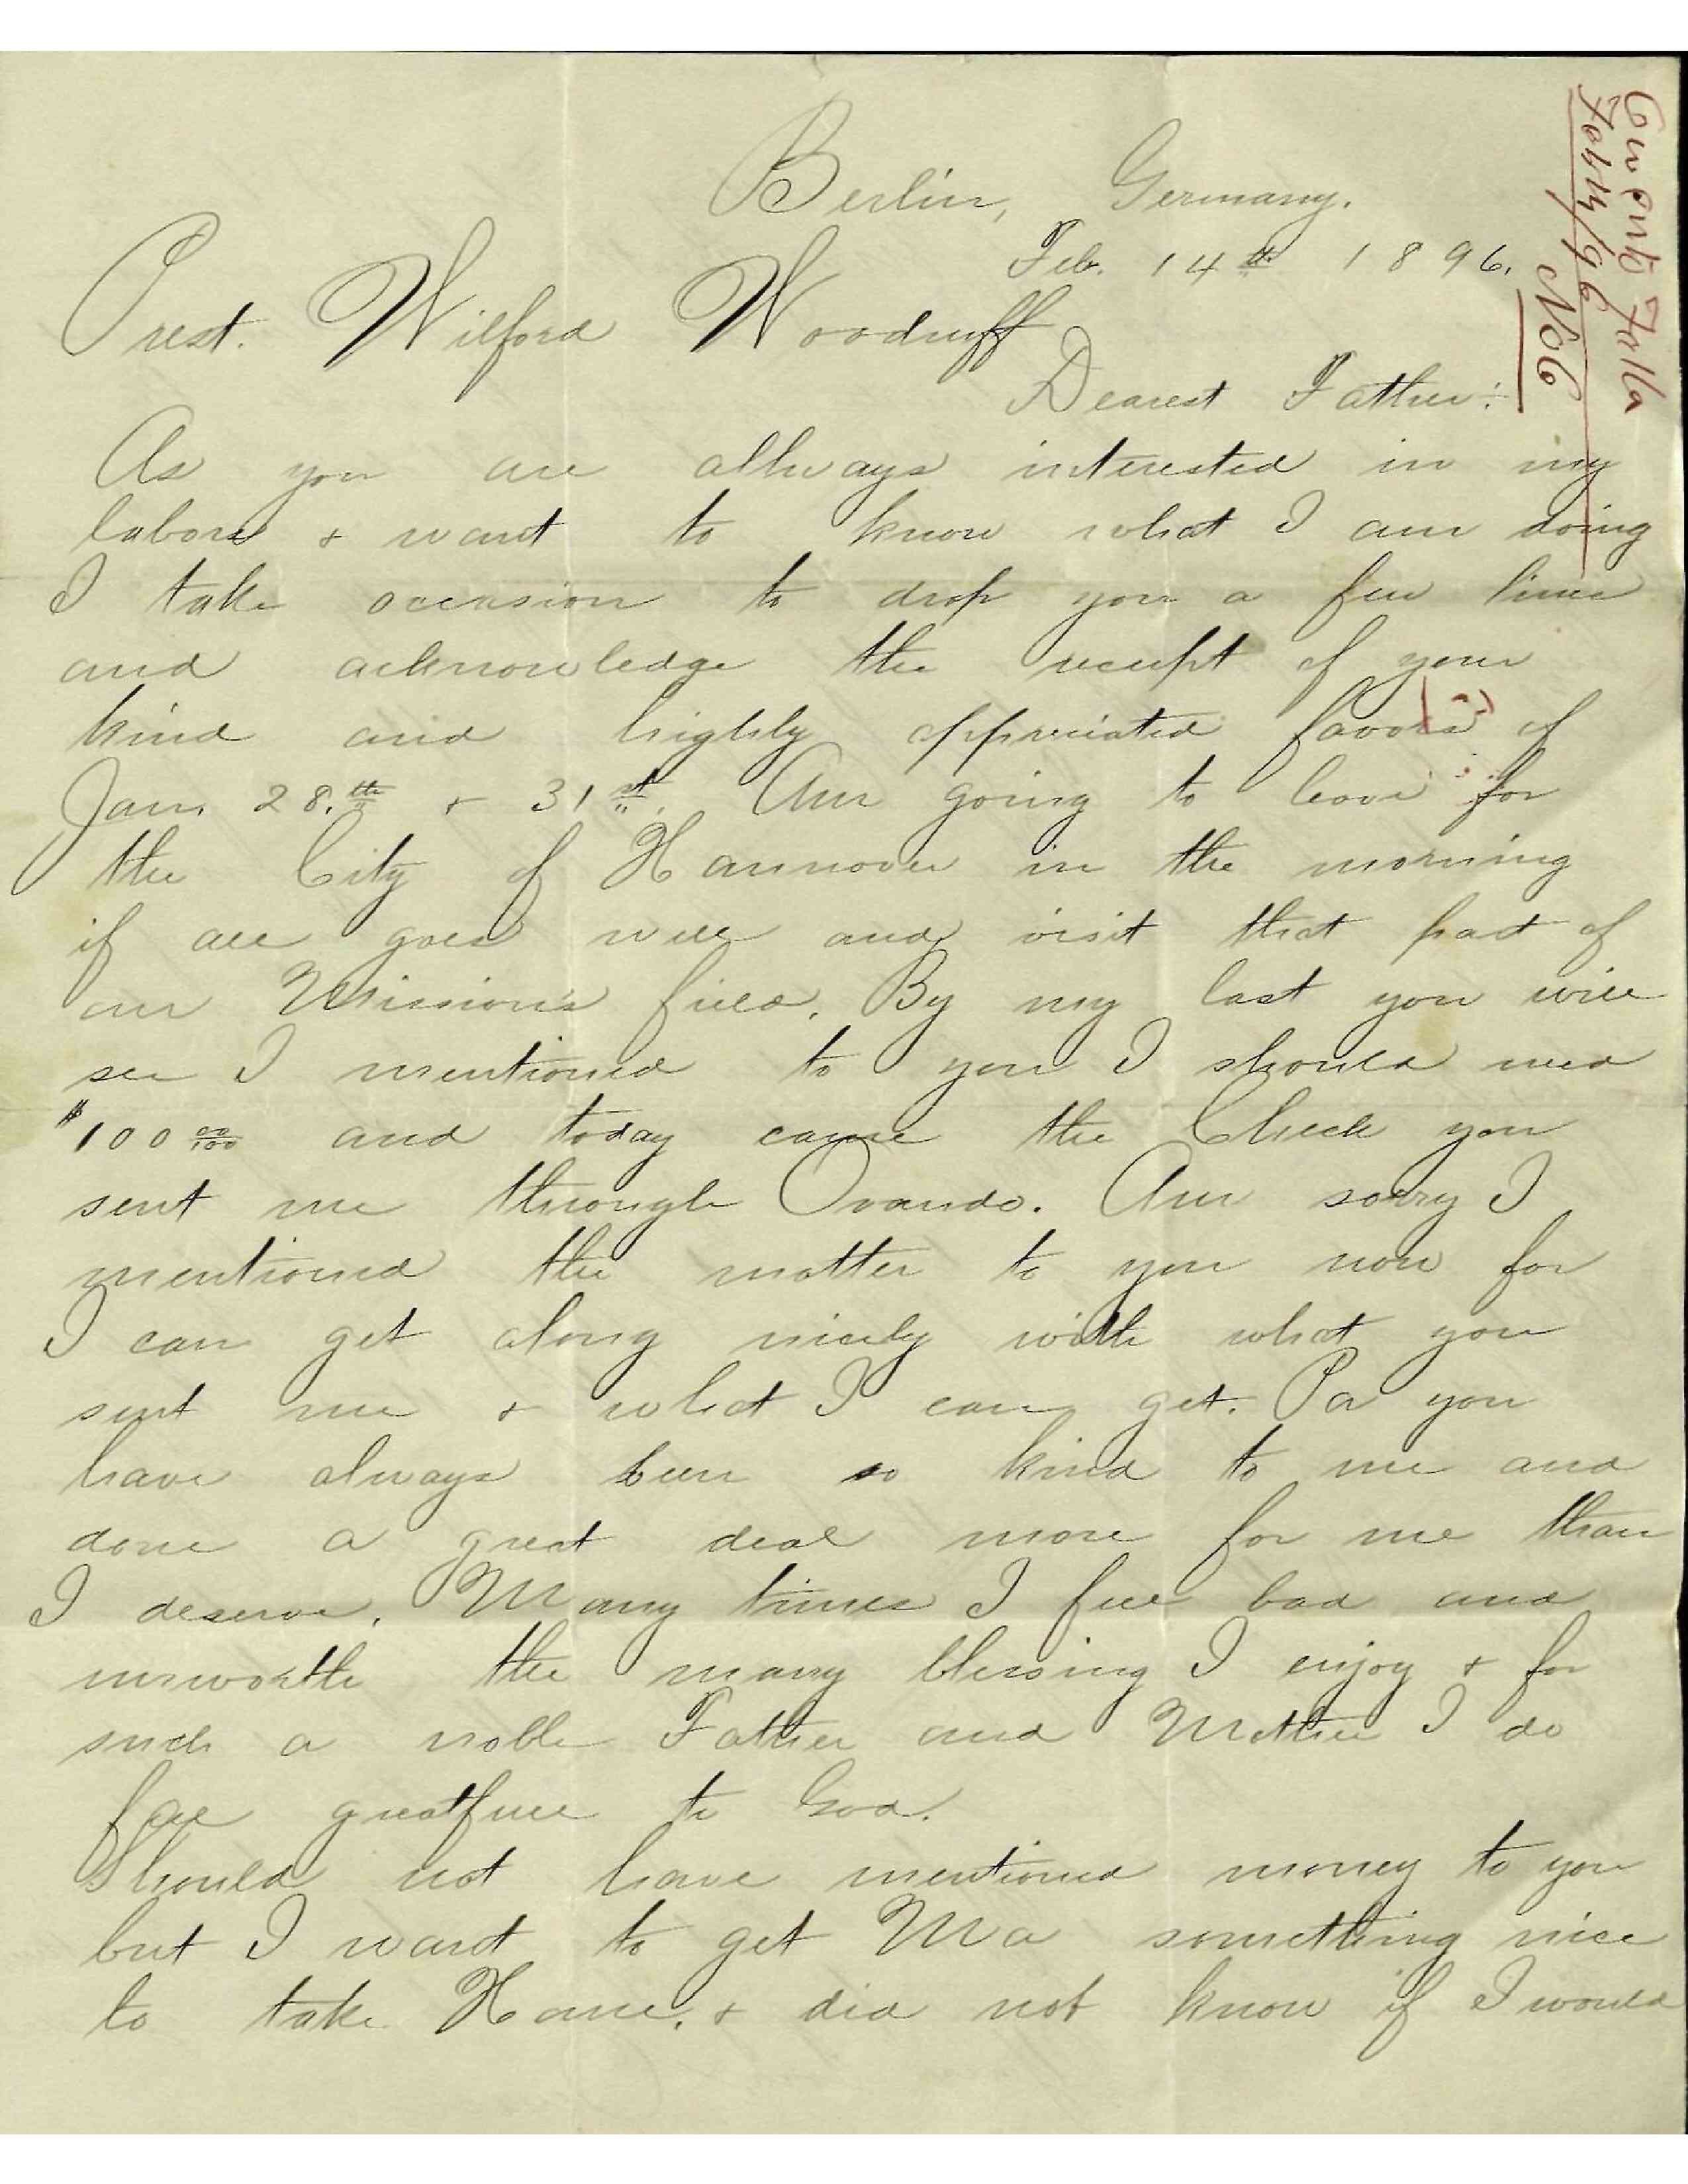 Berlin, Germany.
Feb. 14th 1896.
Prest. Wilford Woodruff
Dearest Father:
As you are allways interested in my
labors & want to know what I am doing
I take occasion to drop you a few lines
and acknowledge the receipt of your
kind and highly appreciated favors of
Jan. 28.th & 31st. Am going to leave for
the City of Hannover in the morning
if all goes well and visit that part of
our Mission's field. By my last you will
see I mentioned to you I should need
$100 00/100 and today came the Check you
sent me through Ovando. Am sorry I
mentioned the matter to you now for
I can get along nicely with what you
sent me & what I can get. Pa you
have always been so kind to me and
done a great deal more for me than
I deserve. Many times I feel bad and
unworthe the many blessing I enjoy & for
such a noble Father and Mother I do
feel greatfull to God.
Should not have mentioned money to you
but I want to get Ma something nice
to take Home, & did not know if I would
Feb 14/96
No 6